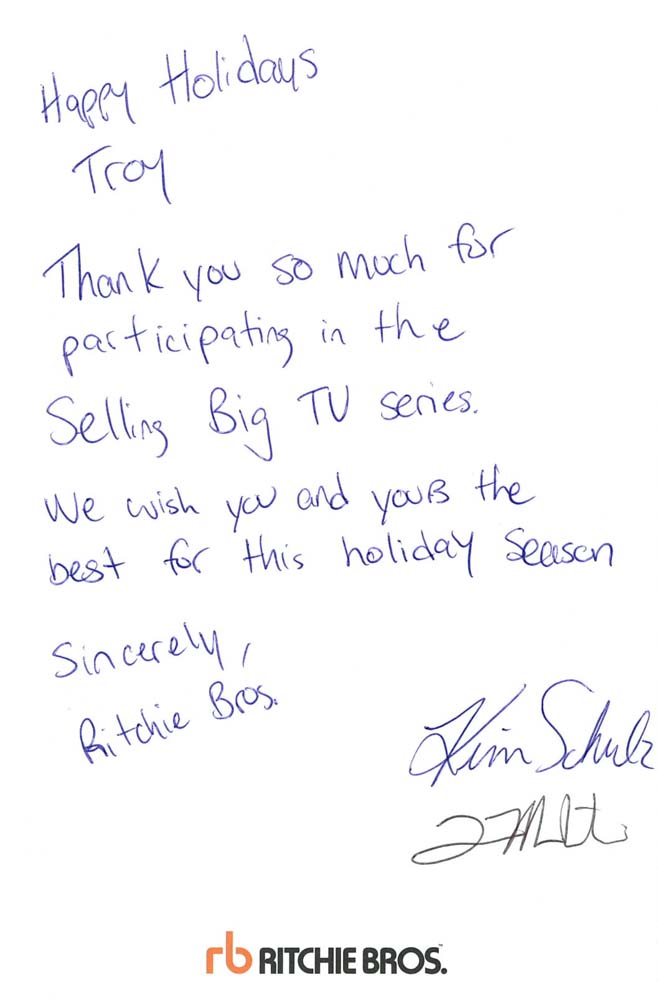 Happy Holidays
Troy
Thank you so much for
participating in the
Selling Big TV series.
We wish you and yours the
best for this holiday season
Sincerely,
Ritchie Bros.
Kim Schulz
rb RITCHIE BROS.